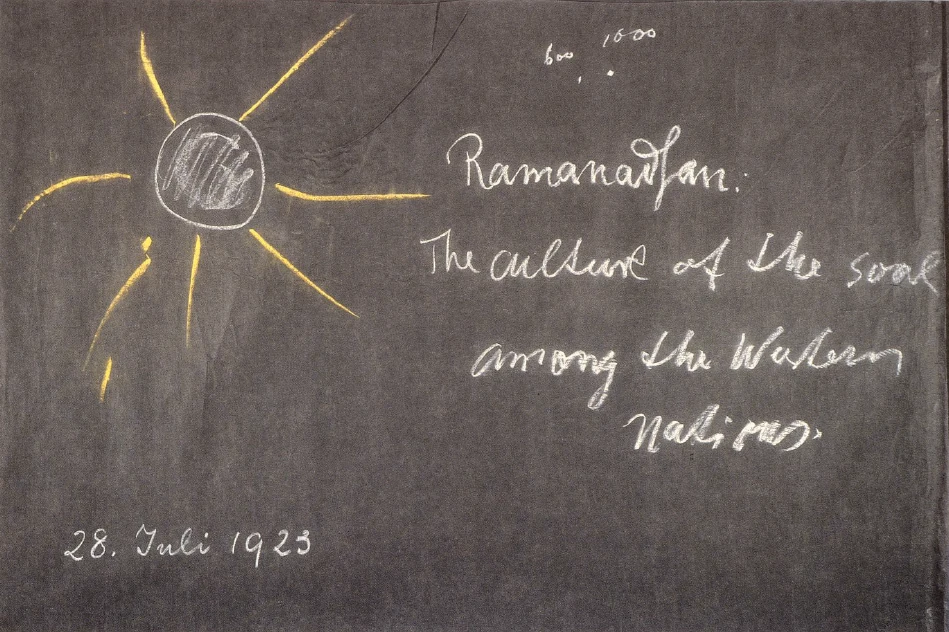 600 1000
Ramanadhan:
The culture of the soul
among the Western
nations.
28. Juli 1923